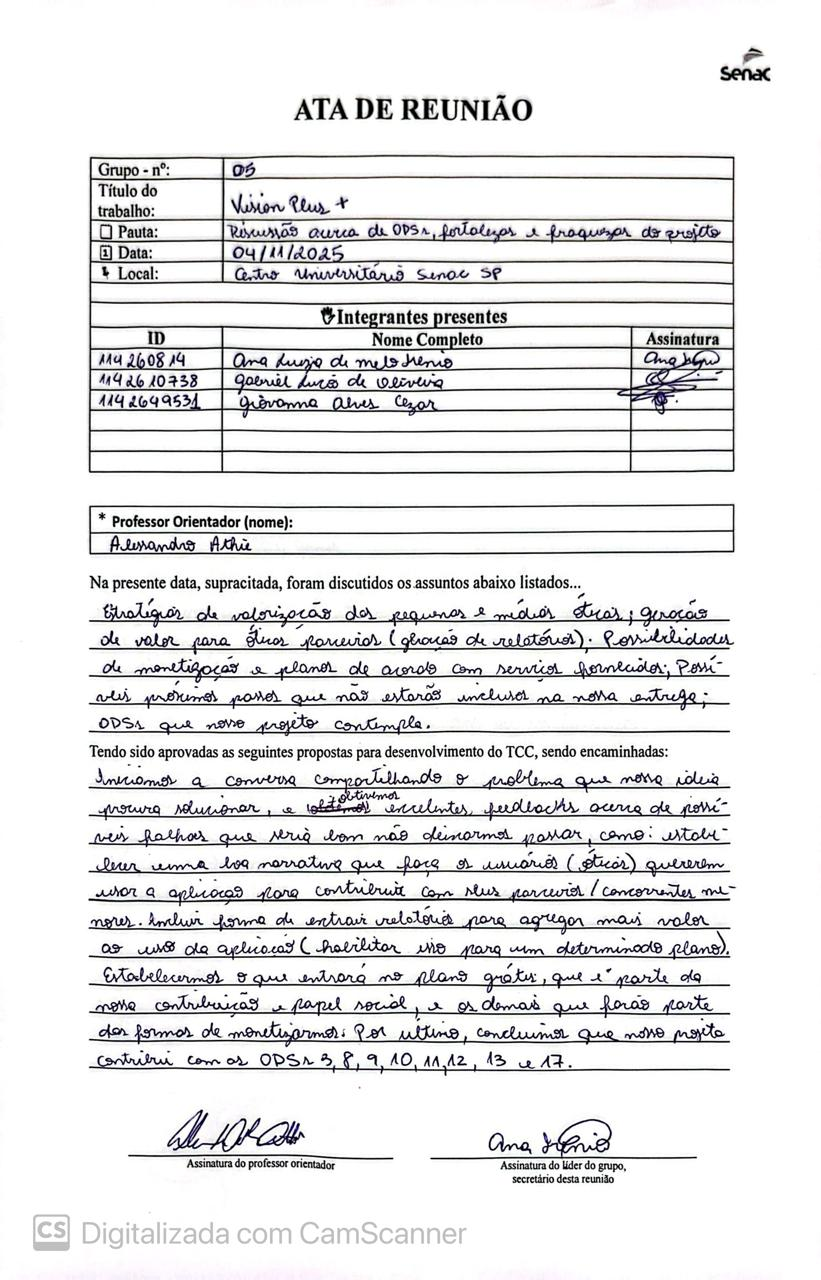 Senac
ATA DE REUNIÃO
Grupo - nº: 05
Título do
trabalho: Vision Plus +
Pauta: Discussão acerca de ODSs, fortalezas e fraquezas do projeto
Data: 04/11/2025
Local: Centro Universitário Senac SP
Integrantes presentes
ID Nome Completo Assinatura
114260814 Ana Luiza de Melo Ana
1142610738 Gabriel de Oliveira
1142649531 Giovanna Alves Cezar
* Professor Orientador (nome):
Alessandro Athie
Na presente data, supracitada, foram discutidos os assuntos abaixo listados...
Estratégias de valorização das pequenas e médias óticas; geração
de valor para óticas parceiras (geração de relatórios). Possibilidades
de monetização e planos de acordo com serviços fornecidos; Possí-
veis próximos passos que não estarão inclusos na nossa entrega;
ODSs que nosso projeto contempla.
Tendo sido aprovadas as seguintes propostas para desenvolvimento do TCC, sendo encaminhadas:
Iniciamos a conversa compartilhando o problema que nossa ideia
procura solucionar, e obtivemos excelentes feedbacks acerca de possí-
veis falhas que seria bom não deixarmos passar, como: estabe-
lecer uma boa narrativa que faça os usuários (óticas) quererem
usar a aplicação para contribuir com seus parceiros/concorrentes me-
nores. Incluir forma de extrair relatórios para agregar mais valor
ao uso da aplicação (habilitar isso para um determinado plano).
Estabelecermos o que entrará no plano grátis, que é parte da
nossa contribuição e papel social, e os demais que farão parte
das formas de monetizarmos. Por último, concluímos que nosso projeto
contribui com as ODSs 3, 8, 9, 10, 11, 12, 13 e 17.
Ana
Assinatura do professor orientador
Assinatura do líder do grupo,
secretário desta reunião
CS Digitalizada com CamScanner